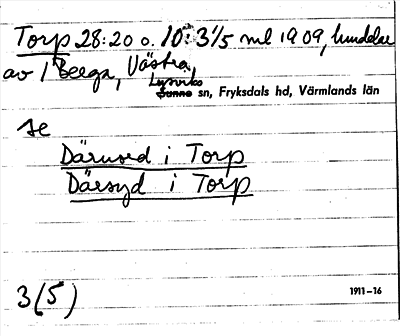 Torp 28:20 o. 10:3 1/5 ml 1909, hemdelar
av 1 Berga, Västra,
Lysviks
Sunne sn, Fryksdals hd, Värmlands län
se
Därnord i Torp
Därsyd i Torp
3(5)
1911-16